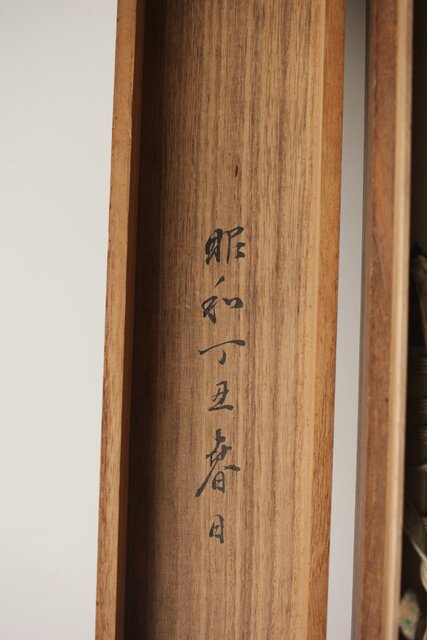 昭和丁丑春日